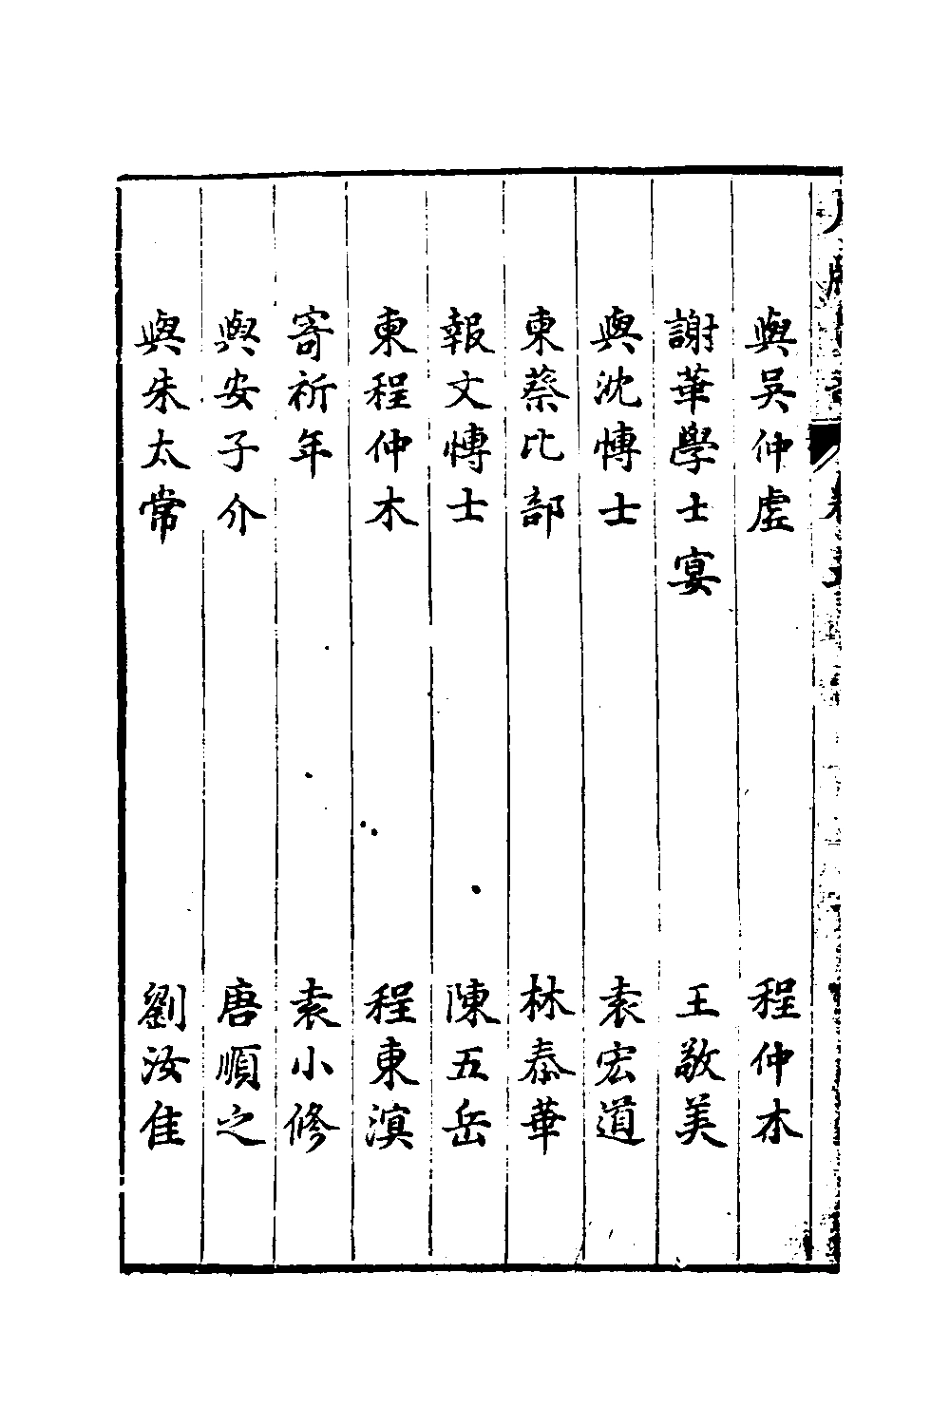 與吳仲虛 程仲木
謝華學士宴 王敬美
與沈博士 袁宏道
柬蔡比部 林泰華
報文博士 陳五岳
柬程仲木 程東溟
寄祈年 袁小修
與安子介 唐順之
與朱太常 劉汝佳